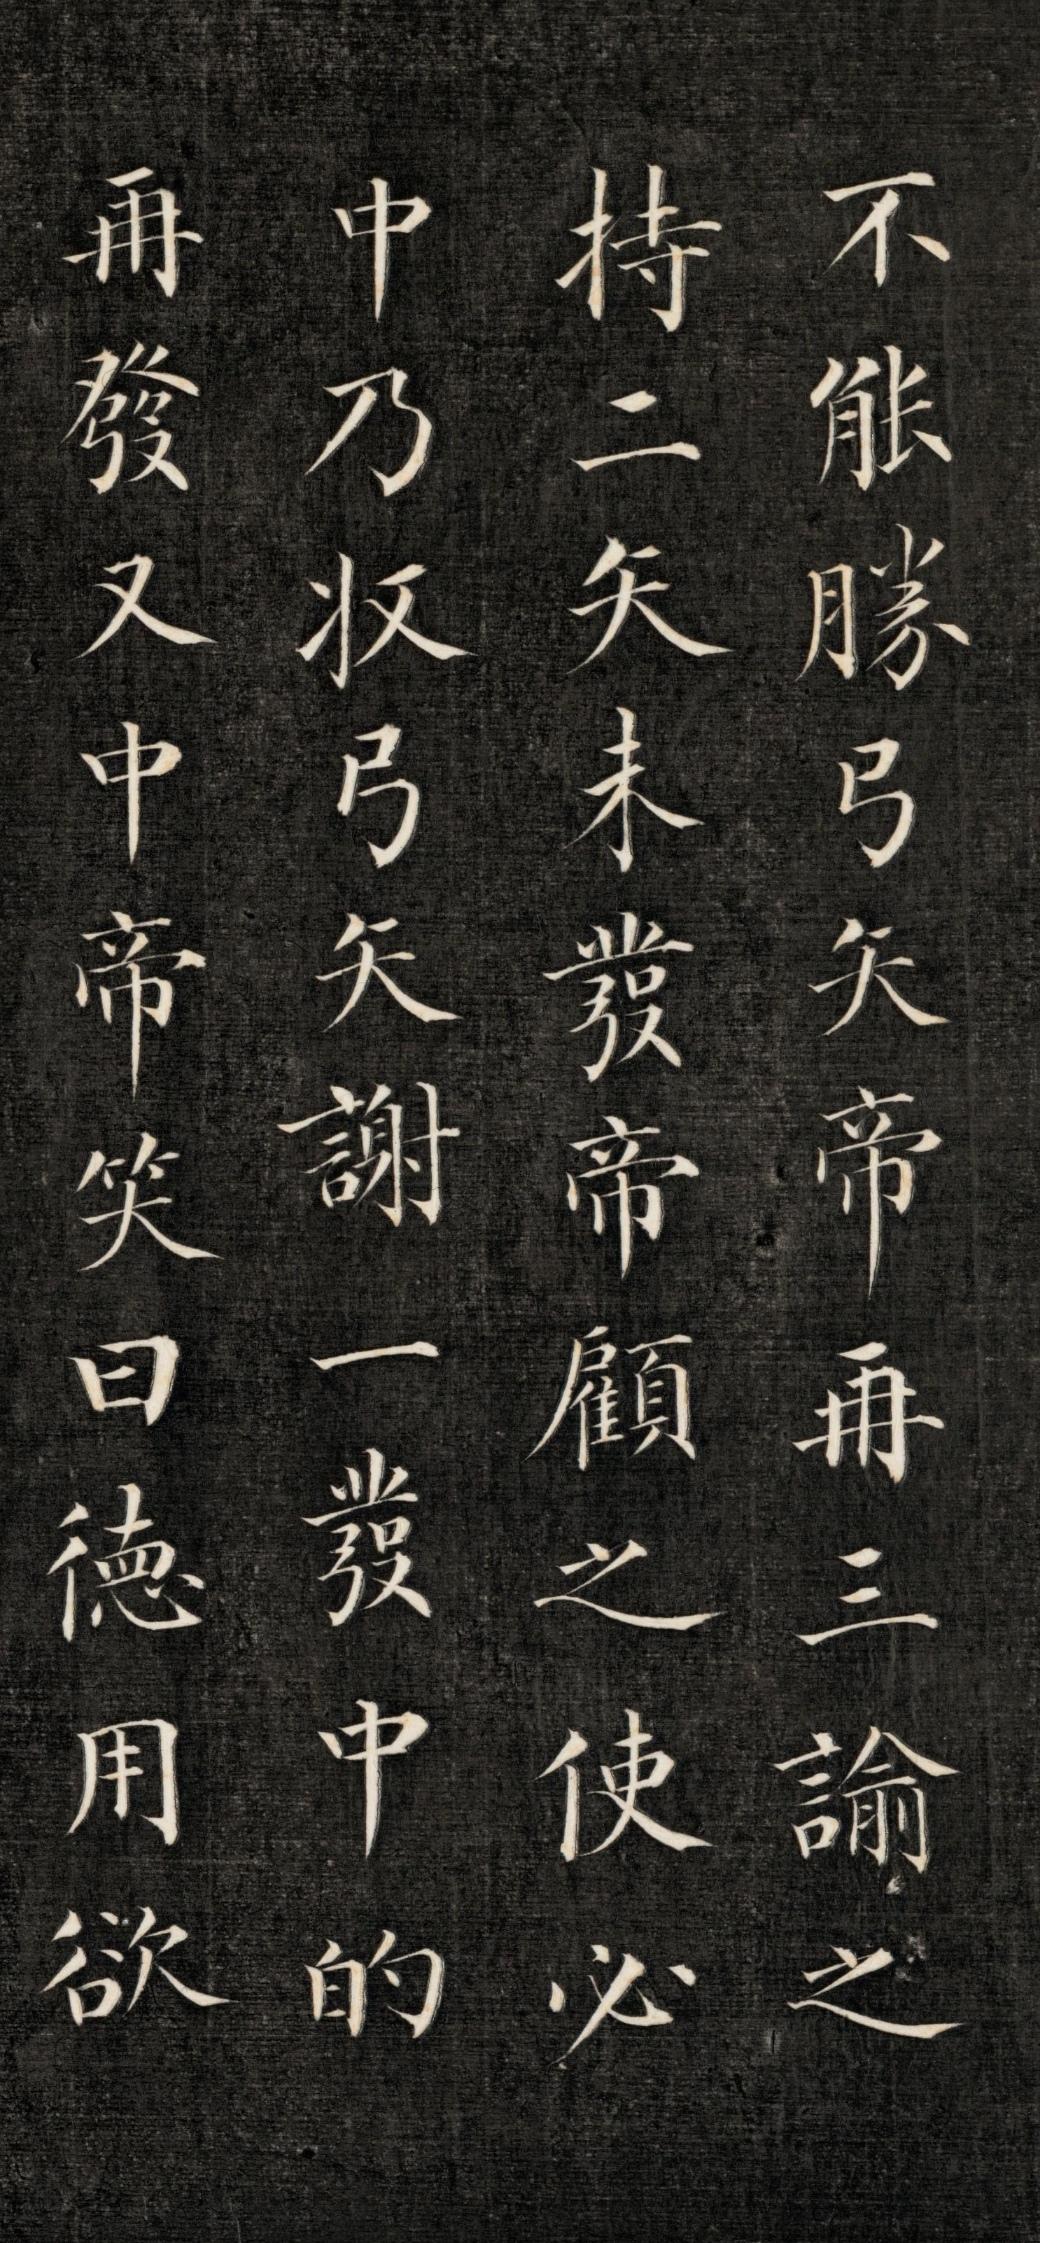 不能勝弓矢帝再三諭之
持二矢未發帝顧之使必
中乃收弓矢謝一發中的
再發又中帝笑曰德用欲